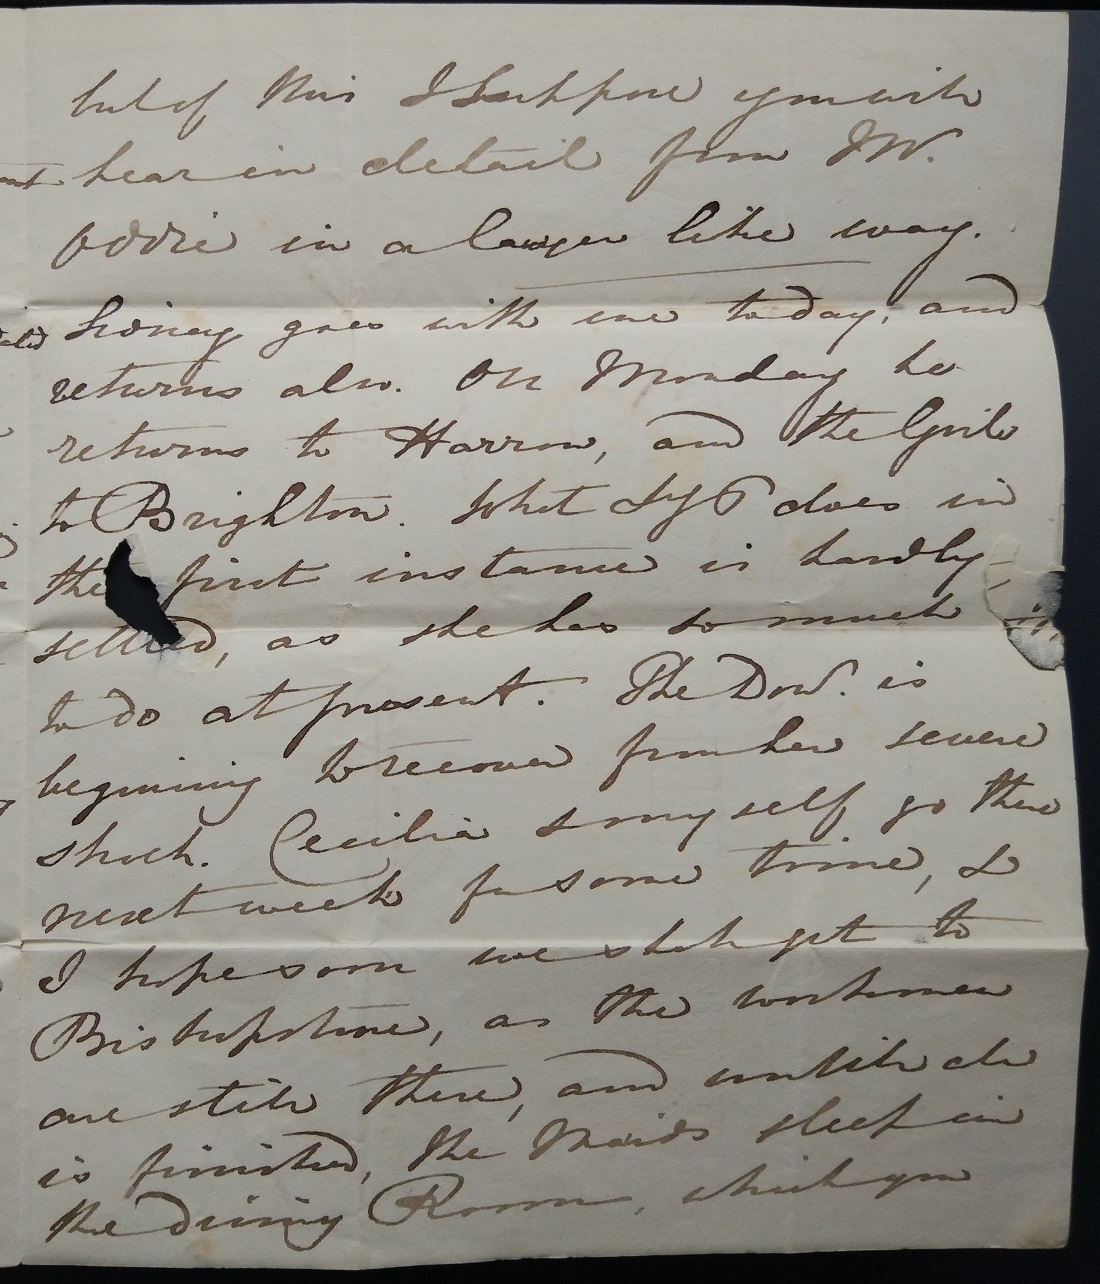 but of this I Suppose you will
hear in detail from J W.
Oddie in a lawyer like way.
Sidney goes with me today, and
returns also. On Monday he
returns to Harrow, and the Girls
to Brighton. What Ly P does in
the first instance is hardly
settled, as she has so much
to do at present. The Dow. is
beginning to recover from her severe
shock. Cecilia & myself go there
next week for some time, &
I hope soon we shall get to
Bishopstone, as the workmen
are still there, and until all
is finished, the Maids sleep in
the dining Room, which you